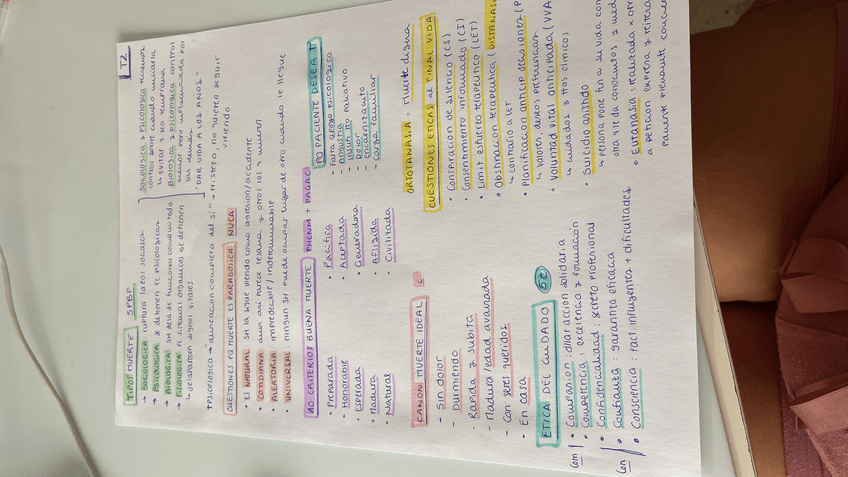 T2
TIPOS MUERTE SPBF
→ SOCIOLOGICA: ruptura lazos sociales
→ PSICOLOGICA: se detienen FC psicologicas
→ BIOLOGICA: SH deja de funcionar como un todo
→ FISIOLOGICA: FC sistemas organicos se detienen
↳ detenimiento signos vitales
Sociologica y psicologica tenemos
control sobre cuando iniciarla
↳ evitar q sea temprana
Biologica y psicologica control
menor pero influenciada por
las demás.
"DAR VIDA A LOS AÑOS"
*Psicologica → "alineacion completa del sí" → tristeza, no quiero seguir
viviendo
CUESTIONES PQ MUERTE ES PARADOJICA NUCA
• Es NATURAL: SH la sigue viendo como agresion/accidente
• COTIDIANA: aun asi parece lejana y otros los q mueren
• ALEATORIA: impredecible/indeterminable
• UNIVERSAL: ningun SH puede ocupar lugar de otro cuando le llegue
10 CRITERIOS BUENA MUERTE PHEMN + PAGAC
• Preparada
• Honorable
• Esperada
• Madura
• Natural
• Pacifica
• Aceptada
• Generadora
• Afligida
• Civilizada
PQ PACIENTE DESEA
- Falta apoyo psicologico
- Angustia
- paliativo
- Dolor
- Encarnizamiento
- Carga familiar
CANON MUERTE IDEAL
- Sin dolor
- Durmiendo
- Rapida y subita
- Madura/edad avanzada
- Con seres queridos
• En casa
ORTOTANASIA = Muerte digna
CUESTIONES ETICAS al FINAL VIDA
• Conspiracion de silencio (CS)
• Consentimiento informado (CI)
• Limit esfuerzo terapeutico (LET)
• Obstinacion terapeutica DISTANASIA
↳ contrario a LET
• Planificacion anticip decisiones (P
↳ valores, deseos, preferencias
• Voluntad vital anticipada (VVA
↳ cuidados y ttos clinicos
• Suicidio asistido
↳ persona pone fin a su vida con
otra q le da conocimientos y medi
• Eutanasia: realizada x otro
a peticion expresa y reitera
paciente mediante conoce
ETICA DEL CUIDADO 5C
Com
• Compasion: dolor, accion solidaria
• Competencia: excelencia y formacion
• Confidencialidad: secreto profesional
Con
• Confianza: garantiza eficacia
• Consciencia: fact. influyentes + dificultades